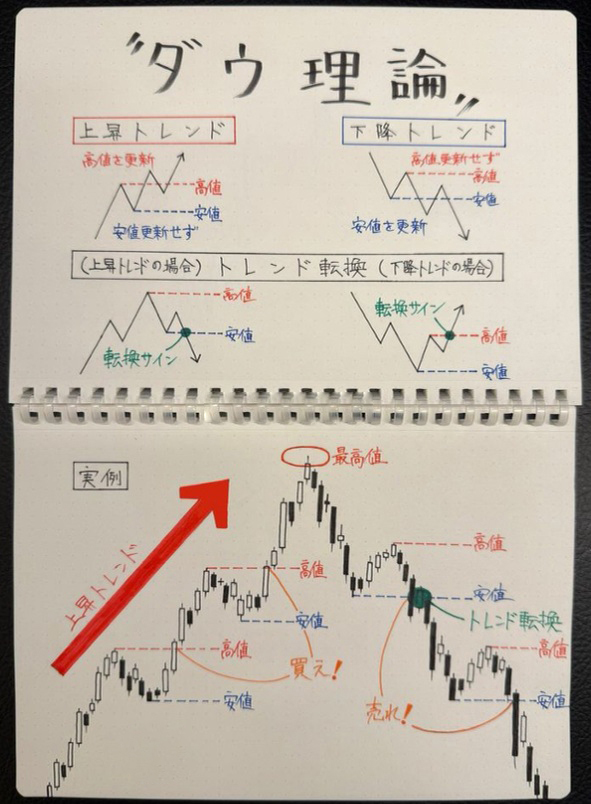 "ダウ理論"
上昇トレンド
高値を更新
高値
安値
安値更新せず
下降トレンド
高値更新せず
高値
安値
安値を更新
(上昇トレンドの場合) トレンド転換 (下降トレンドの場合)
高値
安値
転換サイン
転換サイン
高値
安値
実例
最高値
上昇トレンド
高値
安値
トレンド転換
高値
安値
高値
安値
高値
安値
買え!
売れ!